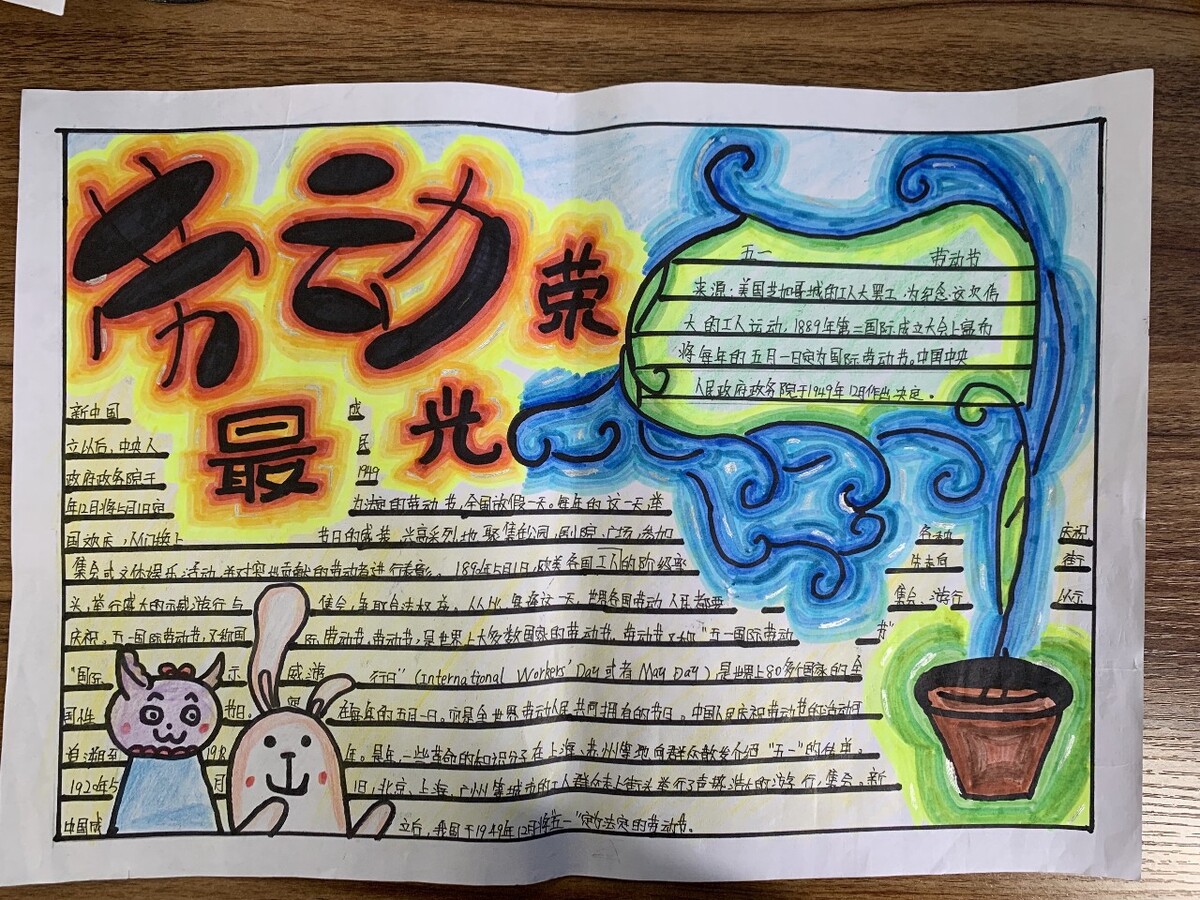 劳动
最光荣
五一 劳动节
来源:美国芝加哥城的工人大罢工,为纪念这次伟
大的工人运动,1889年第二国际成立大会上宣布
将每年的五月一日定为国际劳动节。中国中央
人民政府政务院于1949年12月作出决定。
新中国 成
立以后,中央人 民
政府政务院于 1949
年12月将5月1日定 为法定的劳动节,全国放假一天。每年的这一天,举
国欢庆,人们换上 节日的盛装,兴高采烈地聚集在公园、剧院、广场,参加 各种 庆祝
集会或文体娱乐活动,并对突出贡献的劳动者进行表彰。1890年5月1日,欧美各国工人的阶级率 先走向 街
头,举行盛大的示威游行与 集会,争取合法权益。从此,每逢这一天,世界各国劳动人民都要 集会、游行 以示
庆祝。五一国际劳动节,又称国 际劳动节,劳动节,是世界上大多数国家的劳动节。劳动节又称"五一国际劳动 节"
"国际 示 威游 行日"(International Workers' Day或者May Day)是世界上80多个国家的全
国性 节日。 在每年的五月一日。它是全世界劳动人民共同拥有的节日。中国人民庆祝劳动节的活动可
追溯至 1918 年。是年,一些革命的知识分子在上海、苏州等地向群众散发介绍"五一"的传单。
1920年5 月 1日,北京、上海、广州等城市的工人群众走上街头举行了声势浩大的游行、集会。新
中国成 立后,我国于1949年12月将五一"定为法定的劳动节。